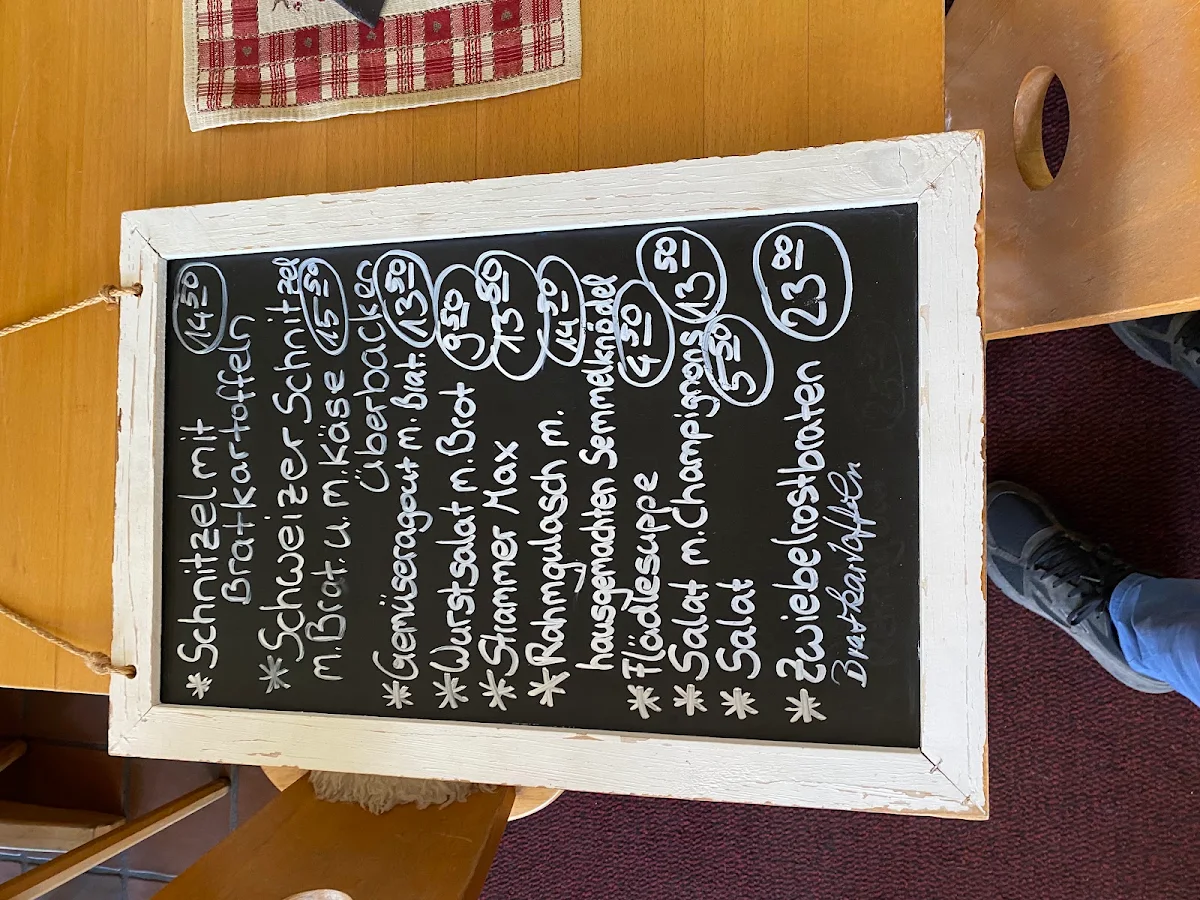 * Schnitzel mit
Bratkartoffeln 14 50
* Schweizer Schnitzel
m. Brat. u. m. Käse 15 50
überbacken
* Gemüseragout m. Brat. 13 50
* Wurstsalat m. Brot 9 50
* Strammer Max 13 50
* Rahmgulasch m. 14 50
hausgemachten Semmelknödel
* Flädlesuppe 4 50
* Salat m. Champignons 13 50
* Salat 5 50
* Zwiebelrostbraten 23 00
Bratkartoffeln